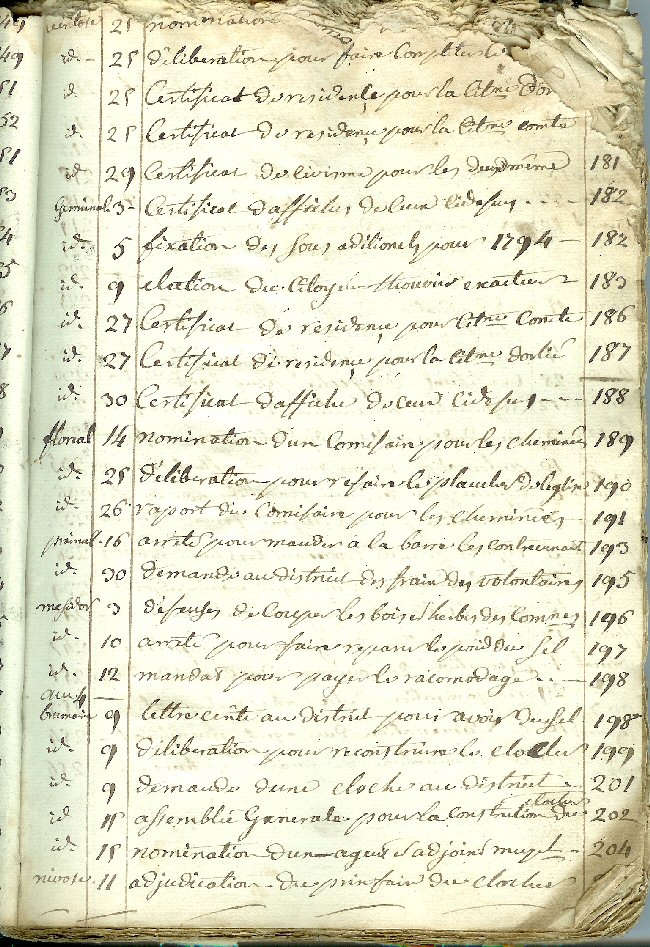 ventose 25 nomination
id. 25 déliberation pour faire
id. 25 Certificat de residence pour la Citne
id. 25 Certificat de residence pour la Citne comte
id 29 Certificat de civisme pour les deux même 181
Germinal 3 Certificat d'affiches de ceux cidesus 182
id. 5 fixation des sous aditionels pour 1794 182
id. 9 election du Citoyen exacteur 183
id. 27 Certificat de residence pour Citne Comte 186
id. 27 Certificat de residence pour la Citne dortié 187
id. 30 Certificat d'affiche de ceux cidesus 188
florial 14 nomination dun Comisaire pour les cheminées 189
id. 25 déliberation pour refaire le plancher de leglise 190
id. 26 raport du Comisaire pour les cheminées 191
prairial 16 arrêté pour mander a la barre les contrevenants 193
id. 30 demande au district des frais des volontaires 195
mesidor 3 défenses de Couper les bois et herbes des Commnes 196
id. 10 arrêté pour faire reparer le poid du sel 197
id. 12 mandat pour payer le racomodage 198
an 4
brumaire 9 lettre ecrite au district pour avoir du sel 198
id. 9 déliberation pour reconstruire le clocher 199
id. 9 demande dune cloche au district 201
id 15 assemblée Generale pour la Constrution du clocher 202
id. 15 nomination dun agent et adjoint 204
nivose 11 adjudication du prixfait du clocher